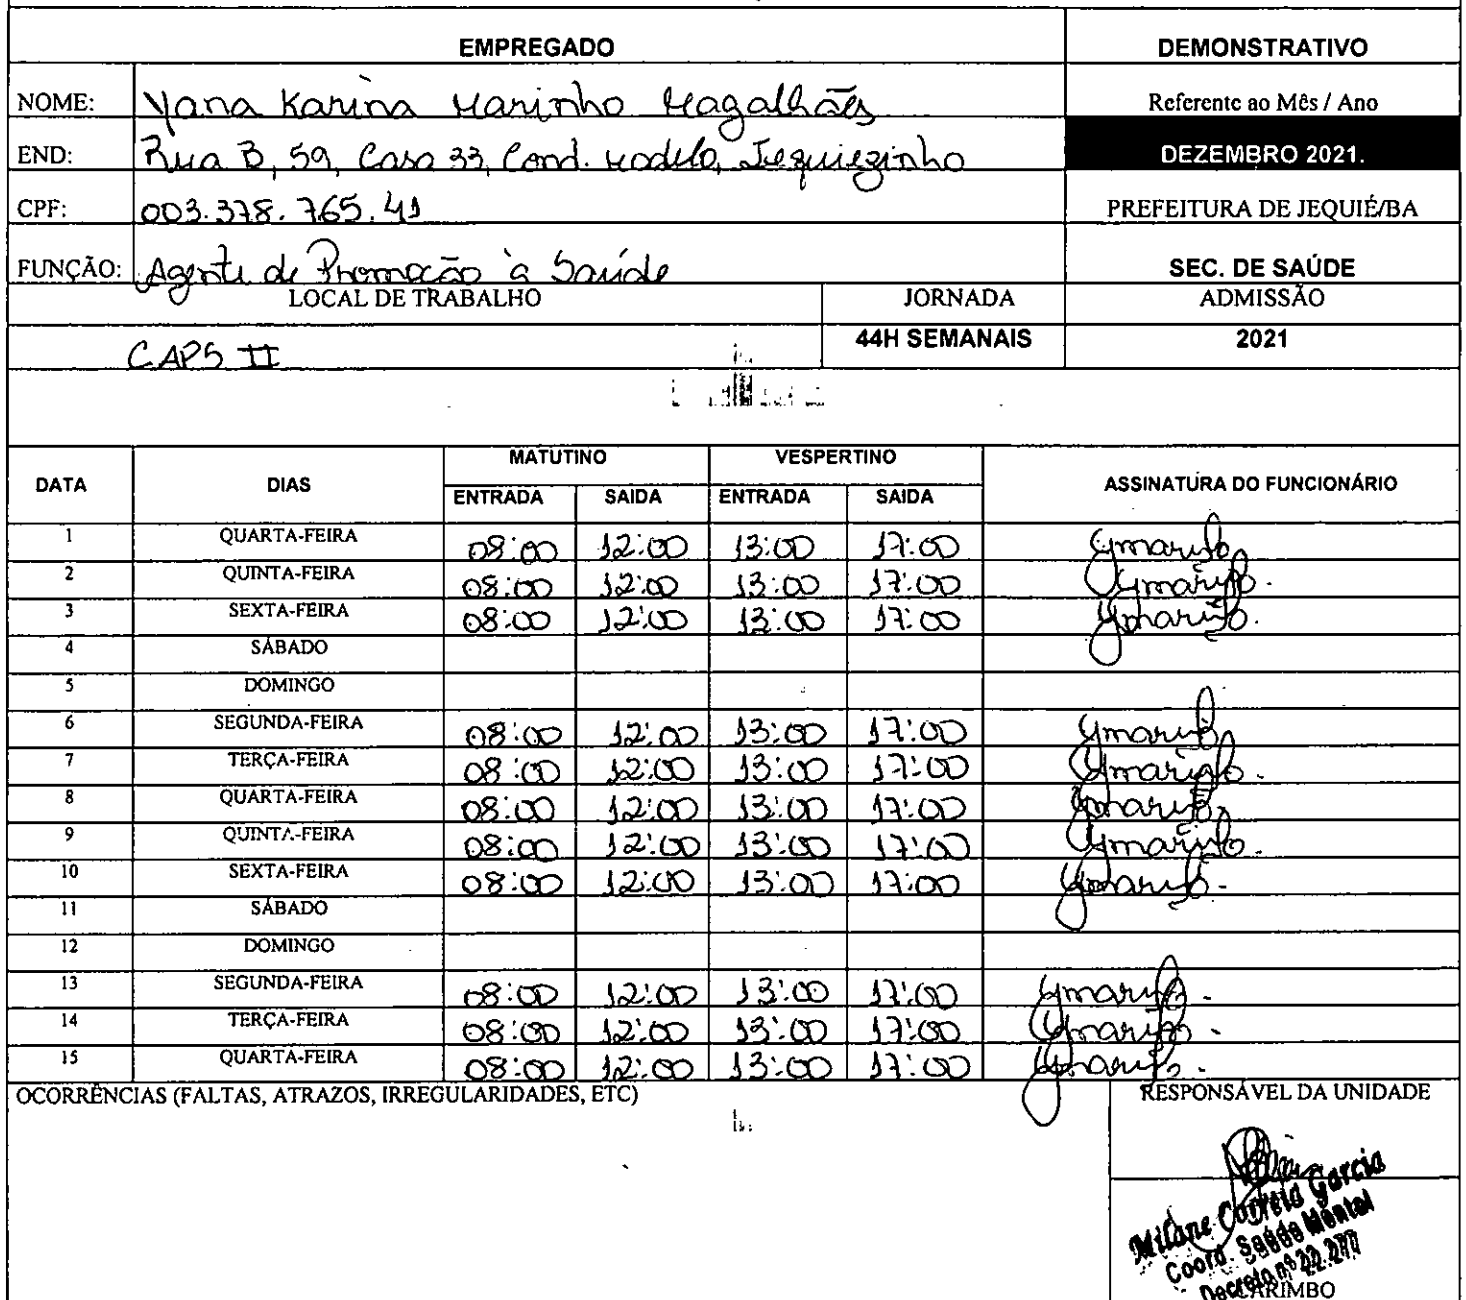 EMPREGADO DEMONSTRATIVO
NOME: Yana Karina Marinho Magalhães Referente ao Mês / Ano
END: Rua B, 59, Casa 33, Cond. Modelo, Jequiezinho DEZEMBRO 2021.
CPF: 003.378.765.41 PREFEITURA DE JEQUIÉ/BA
FUNÇÃO: Agente de Promoção à Saúde SEC. DE SAÚDE
LOCAL DE TRABALHO JORNADA ADMISSÃO
CAPS II 44H SEMANAIS 2021
MATUTINO VESPERTINO
DATA DIAS ASSINATURA DO FUNCIONÁRIO
ENTRADA SAIDA ENTRADA SAIDA
1 QUARTA-FEIRA 08:00 12:00 13:00 17:00 Ymarinho
2 QUINTA-FEIRA 08:00 12:00 13:00 17:00 Ymarinho.
3 SEXTA-FEIRA 08:00 12:00 13:00 17:00 Ymarinho.
4 SÁBADO
5 DOMINGO
6 SEGUNDA-FEIRA 08:00 12:00 13:00 17:00 Ymarinho
7 TERÇA-FEIRA 08:00 12:00 13:00 17:00 Ymarinho.
8 QUARTA-FEIRA 08:00 12:00 13:00 17:00 Ymarinho.
9 QUINTA-FEIRA 08:00 12:00 13:00 17:00 Ymarinho.
10 SEXTA-FEIRA 08:00 12:00 13:00 17:00 Ymarinho.
11 SÁBADO
12 DOMINGO
13 SEGUNDA-FEIRA 08:00 12:00 13:00 17:00 Ymarinho.
14 TERÇA-FEIRA 08:00 12:00 13:00 17:00 Ymarinho.
15 QUARTA-FEIRA 08:00 12:00 13:00 17:00 Ymarinho.
OCORRÊNCIAS (FALTAS, ATRAZOS, IRREGULARIDADES, ETC) RESPONSÁVEL DA UNIDADE
Milane Correia Garcia
Coord. Saúde Mental
Decreto nº 22.277
CARIMBO